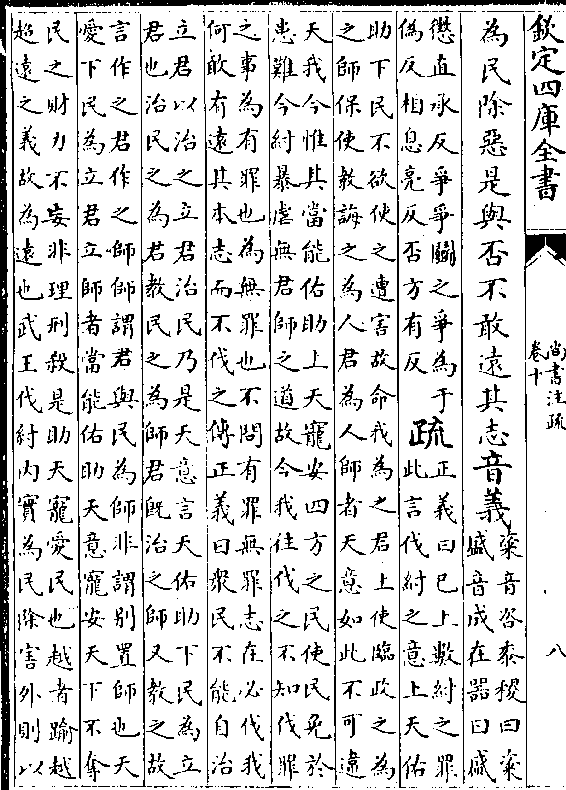 欽定四庫全書
尚書注疏
卷十
八
為民除惡是與否不敢遠其志音義
粢音咨黍稷曰粢
盛音成在器曰盛
懲直承反爭爭鬭之爭為于
偽反相息亮反否方有反
疏
正義曰已上數紂之罪
此言伐紂之意上天佑
助下民不欲使之遭害故命我為之君上使臨政之為
之師保使教誨之為人君為人師者天意如此不可違
天我今惟其當能佑助上天寵安四方之民使民免於
患難今紂暴虐無君師之道故今我往伐之不知伐罪
之事為有罪也為無罪也不問有罪無罪志在必伐我
何敢有遠其本志而不伐之傳正義曰衆民不能自治
立君以治之立君治民乃是天意言天佑助下民為立
君也治民之為君教民之為師君既治之師又教之故
言作之君作之師師謂君與民為師非謂别置師也天
愛下民為立君立師者當能佑助天意寵安天下不奪
民之財力不妄非理刑殺是助天寵愛民也越者踰越
超遠之義故為遠也武王伐紂内實為民除害外則以